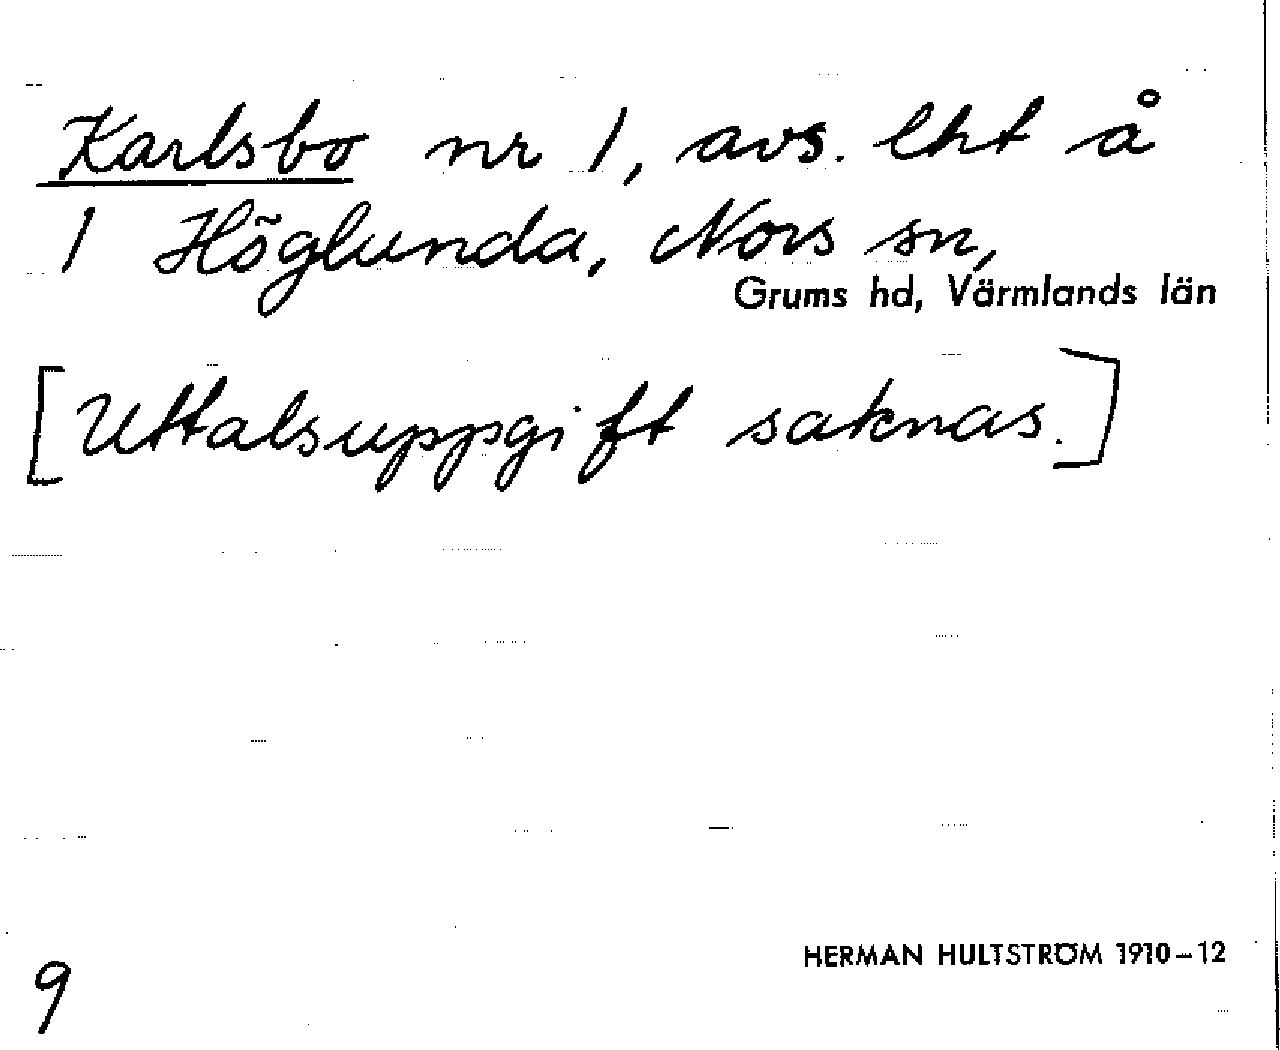 Karlsbo nr 1, avs. lht å
1 Höglunda, Nors sn,
Grums hd, Värmlands län
[Uttalsuppgift saknas.]
HERMAN HULTSTRÖM 1910-12
9